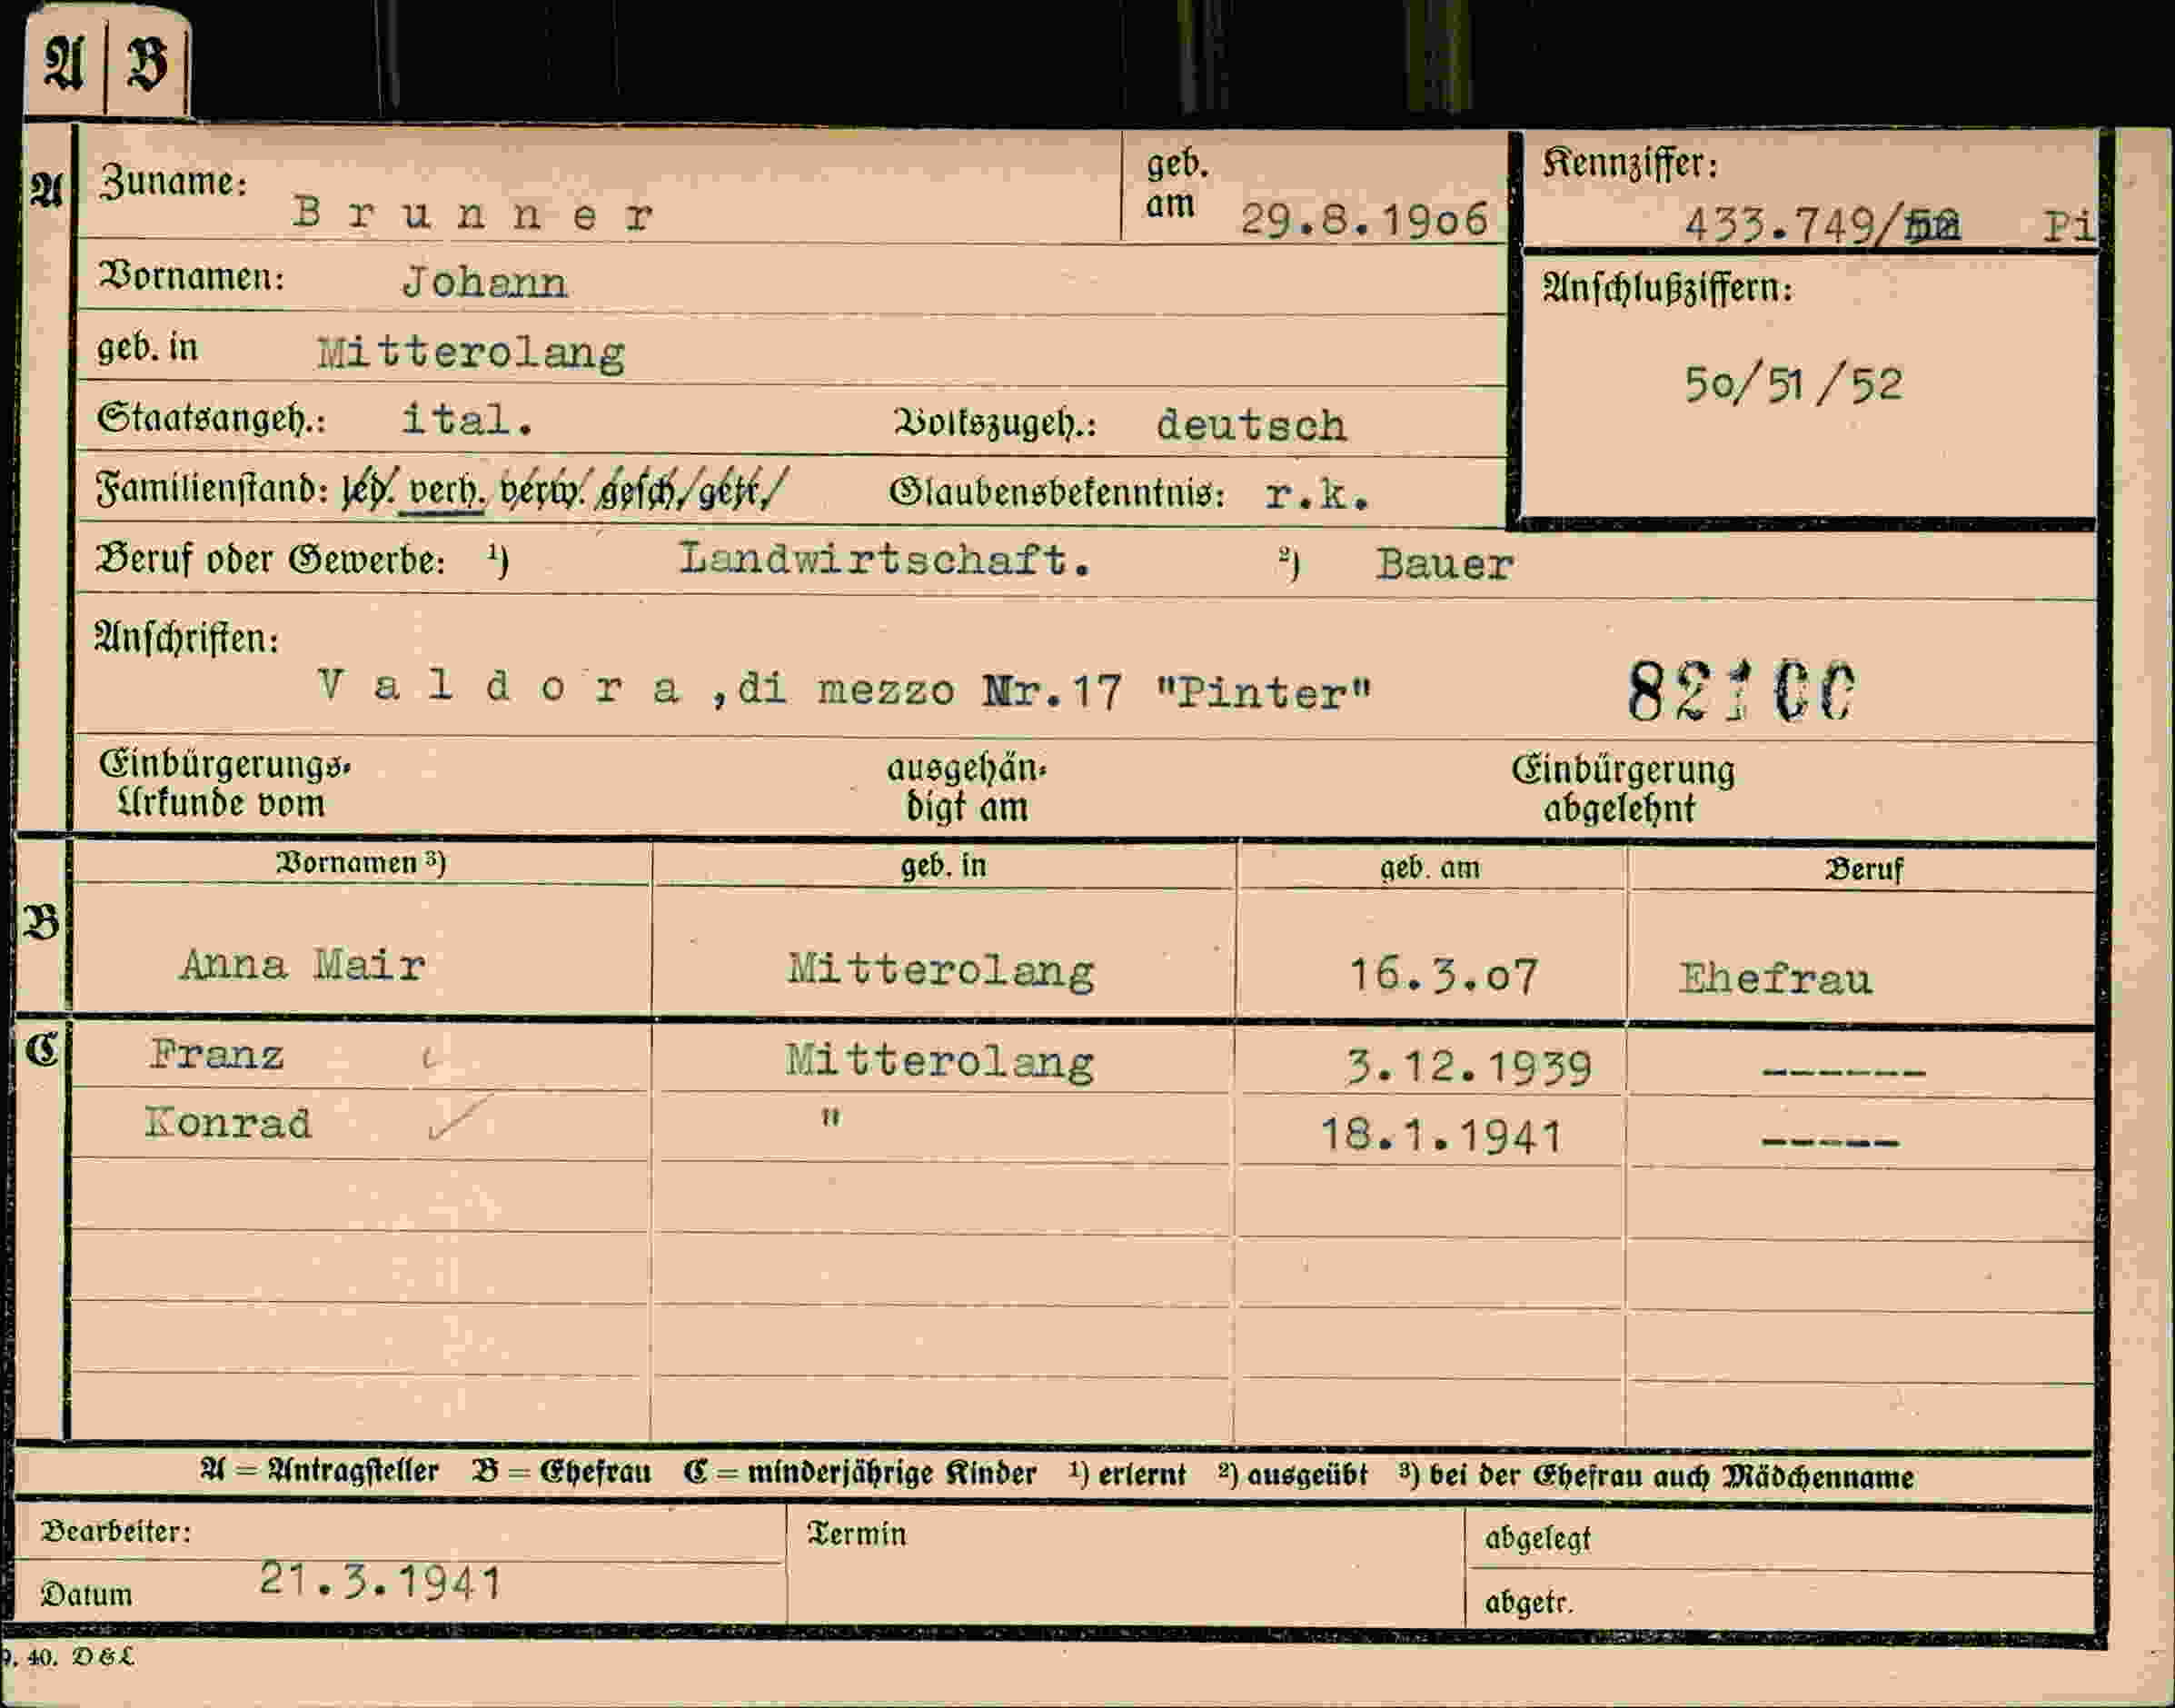 A B
A
Zuname: Brunner geb. am 29.8.1906 Kennziffer: 433.749/ Pi
Vornamen: Johann Anschlußziffern:
geb. in Mitterolang 50/51/52
Staatsangeh.: ital. Volkszugeh.: deutsch
Familienstand: led. verh. verw. gesch. getr. Glaubensbekenntnis: r.k.
Beruf oder Gewerbe: ¹) Landwirtschaft. ²) Bauer
Anschriften:
Valdora,di mezzo Nr.17 "Pinter" 82100
Einbürgerungs-Urkunde vom ausgehändigt am Einbürgerung abgelehnt
Vornamen ³) geb. in geb. am Beruf
B
Anna Mair Mitterolang 16.3.07 Ehefrau
C
Franz Mitterolang 3.12.1939 ------
Konrad " 18.1.1941 -----
A = Antragsteller B = Ehefrau C = minderjährige Kinder ¹) erlernt ²) ausgeübt ³) bei der Ehefrau auch Mädchenname
Bearbeiter: Termin abgelegt
Datum 21.3.1941 abgetr.
40. D&L